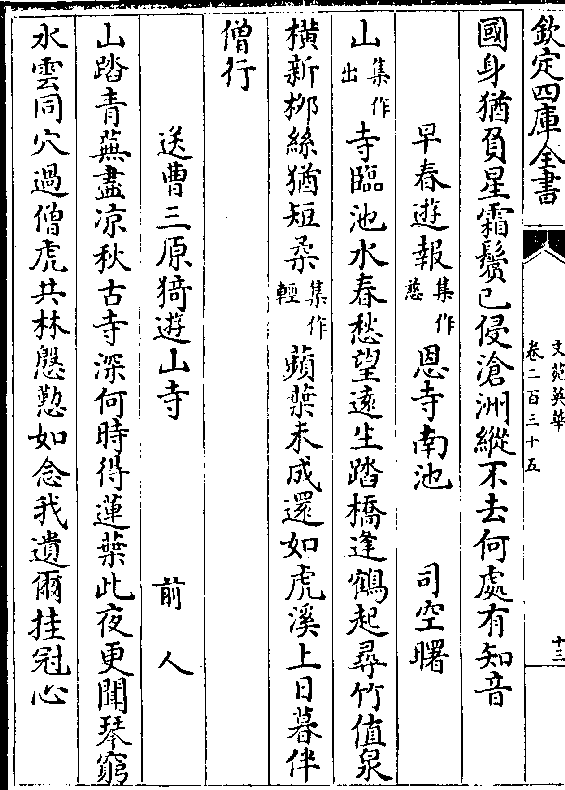 欽定四庫全書
文苑英華
卷二百三十五
十三
國身猶負星霜鬢已侵滄洲縱不去何處有知音
早春遊報集作慈恩寺南池 司空曙
山集作出寺臨池水春愁望遠生踏橋逢鶴起尋竹值泉
橫新栁絲猶短柔集作輕蘋葉未成還如虎溪上日暮伴
僧行
送曹三原猗遊山寺 前人
山踏青蕪盡凉秋古寺深何時得蓮葉此夜更聞琴窮
水雲同穴過僧虎共林慇懃如念我遺爾挂冠心